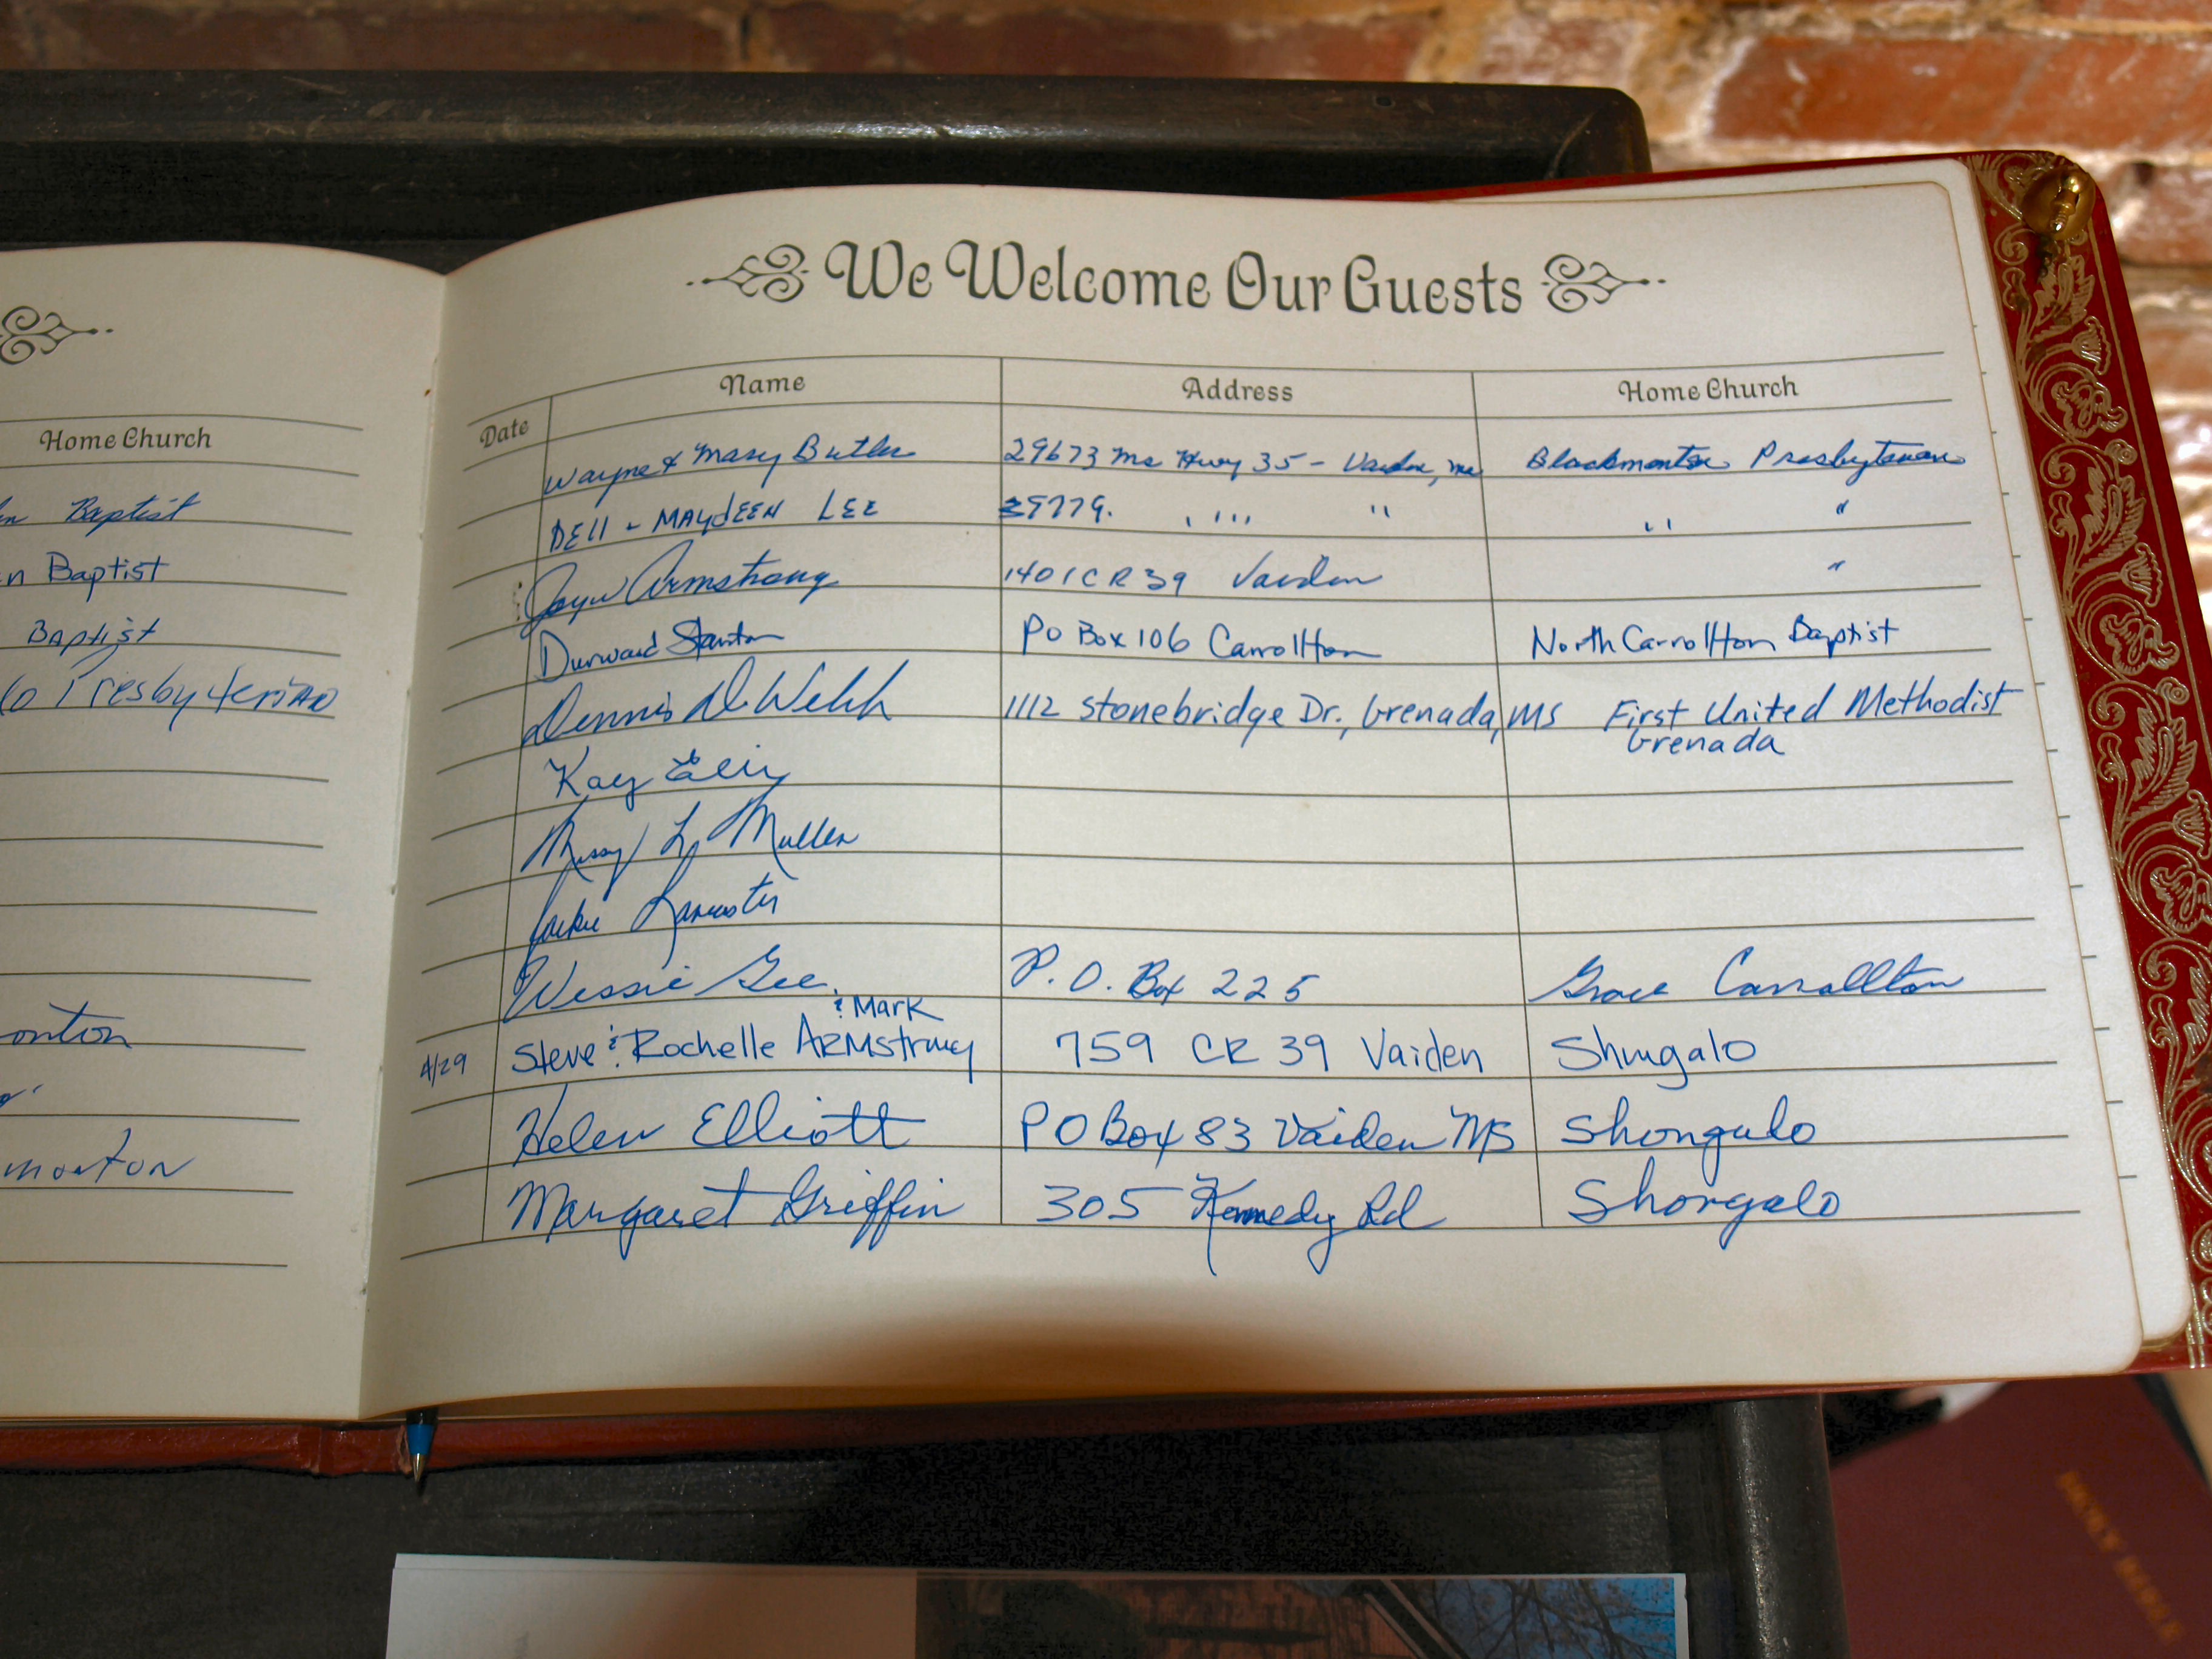 Home Church
Baptist
n Baptist
Baptist
lo Presbyterian
onton
monton
We Welcome Our Guests
Date Name Address Home Church
Wayne & Mary Butler 29673 Ms Hwy 35 - Vaiden, Ms Blackmonton Presbyterian
Dell - MAYDEEN LEE 39779. " " " "
Armstrong 1401 CR 39 Vaiden "
Durward Stanton PO Box 106 Carrollton North Carrollton Baptist
Dennis D. Welch 1112 Stonebridge Dr., Grenada, MS First United Methodist
Grenada
Kay
L. Mullen
Jackie Lancaster
Wessie Gee P.O. Box 225 Grace Carrollton
& Mark
4/29 Steve & Rochelle ARMStrong 759 CR 39 Vaiden Shongalo
Helen Elliott PO Box 83 Vaiden MS Shongalo
Margaret Griffin 305 Kennedy Rd Shongalo
HOLY BIBLE